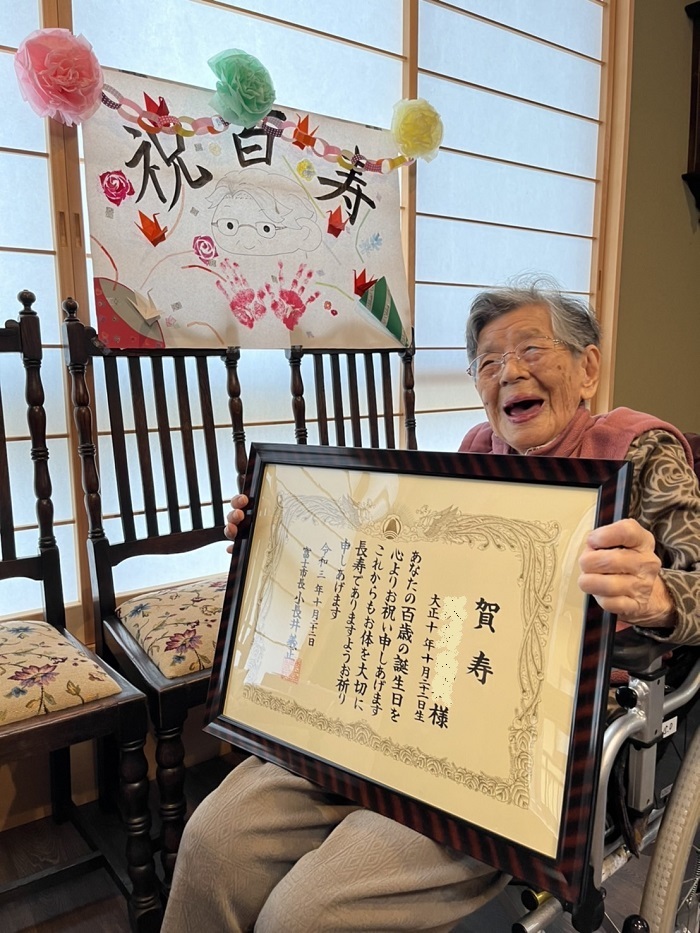 祝百寿
賀寿
様
大正十年十月二十二日生
あなたの百歳の誕生日を
心よりお祝い申しあげます
これからもお体を大切に
長寿でありますようお祈り
申しあげます
令和三年十月二十二日
富士市長 小長井義正